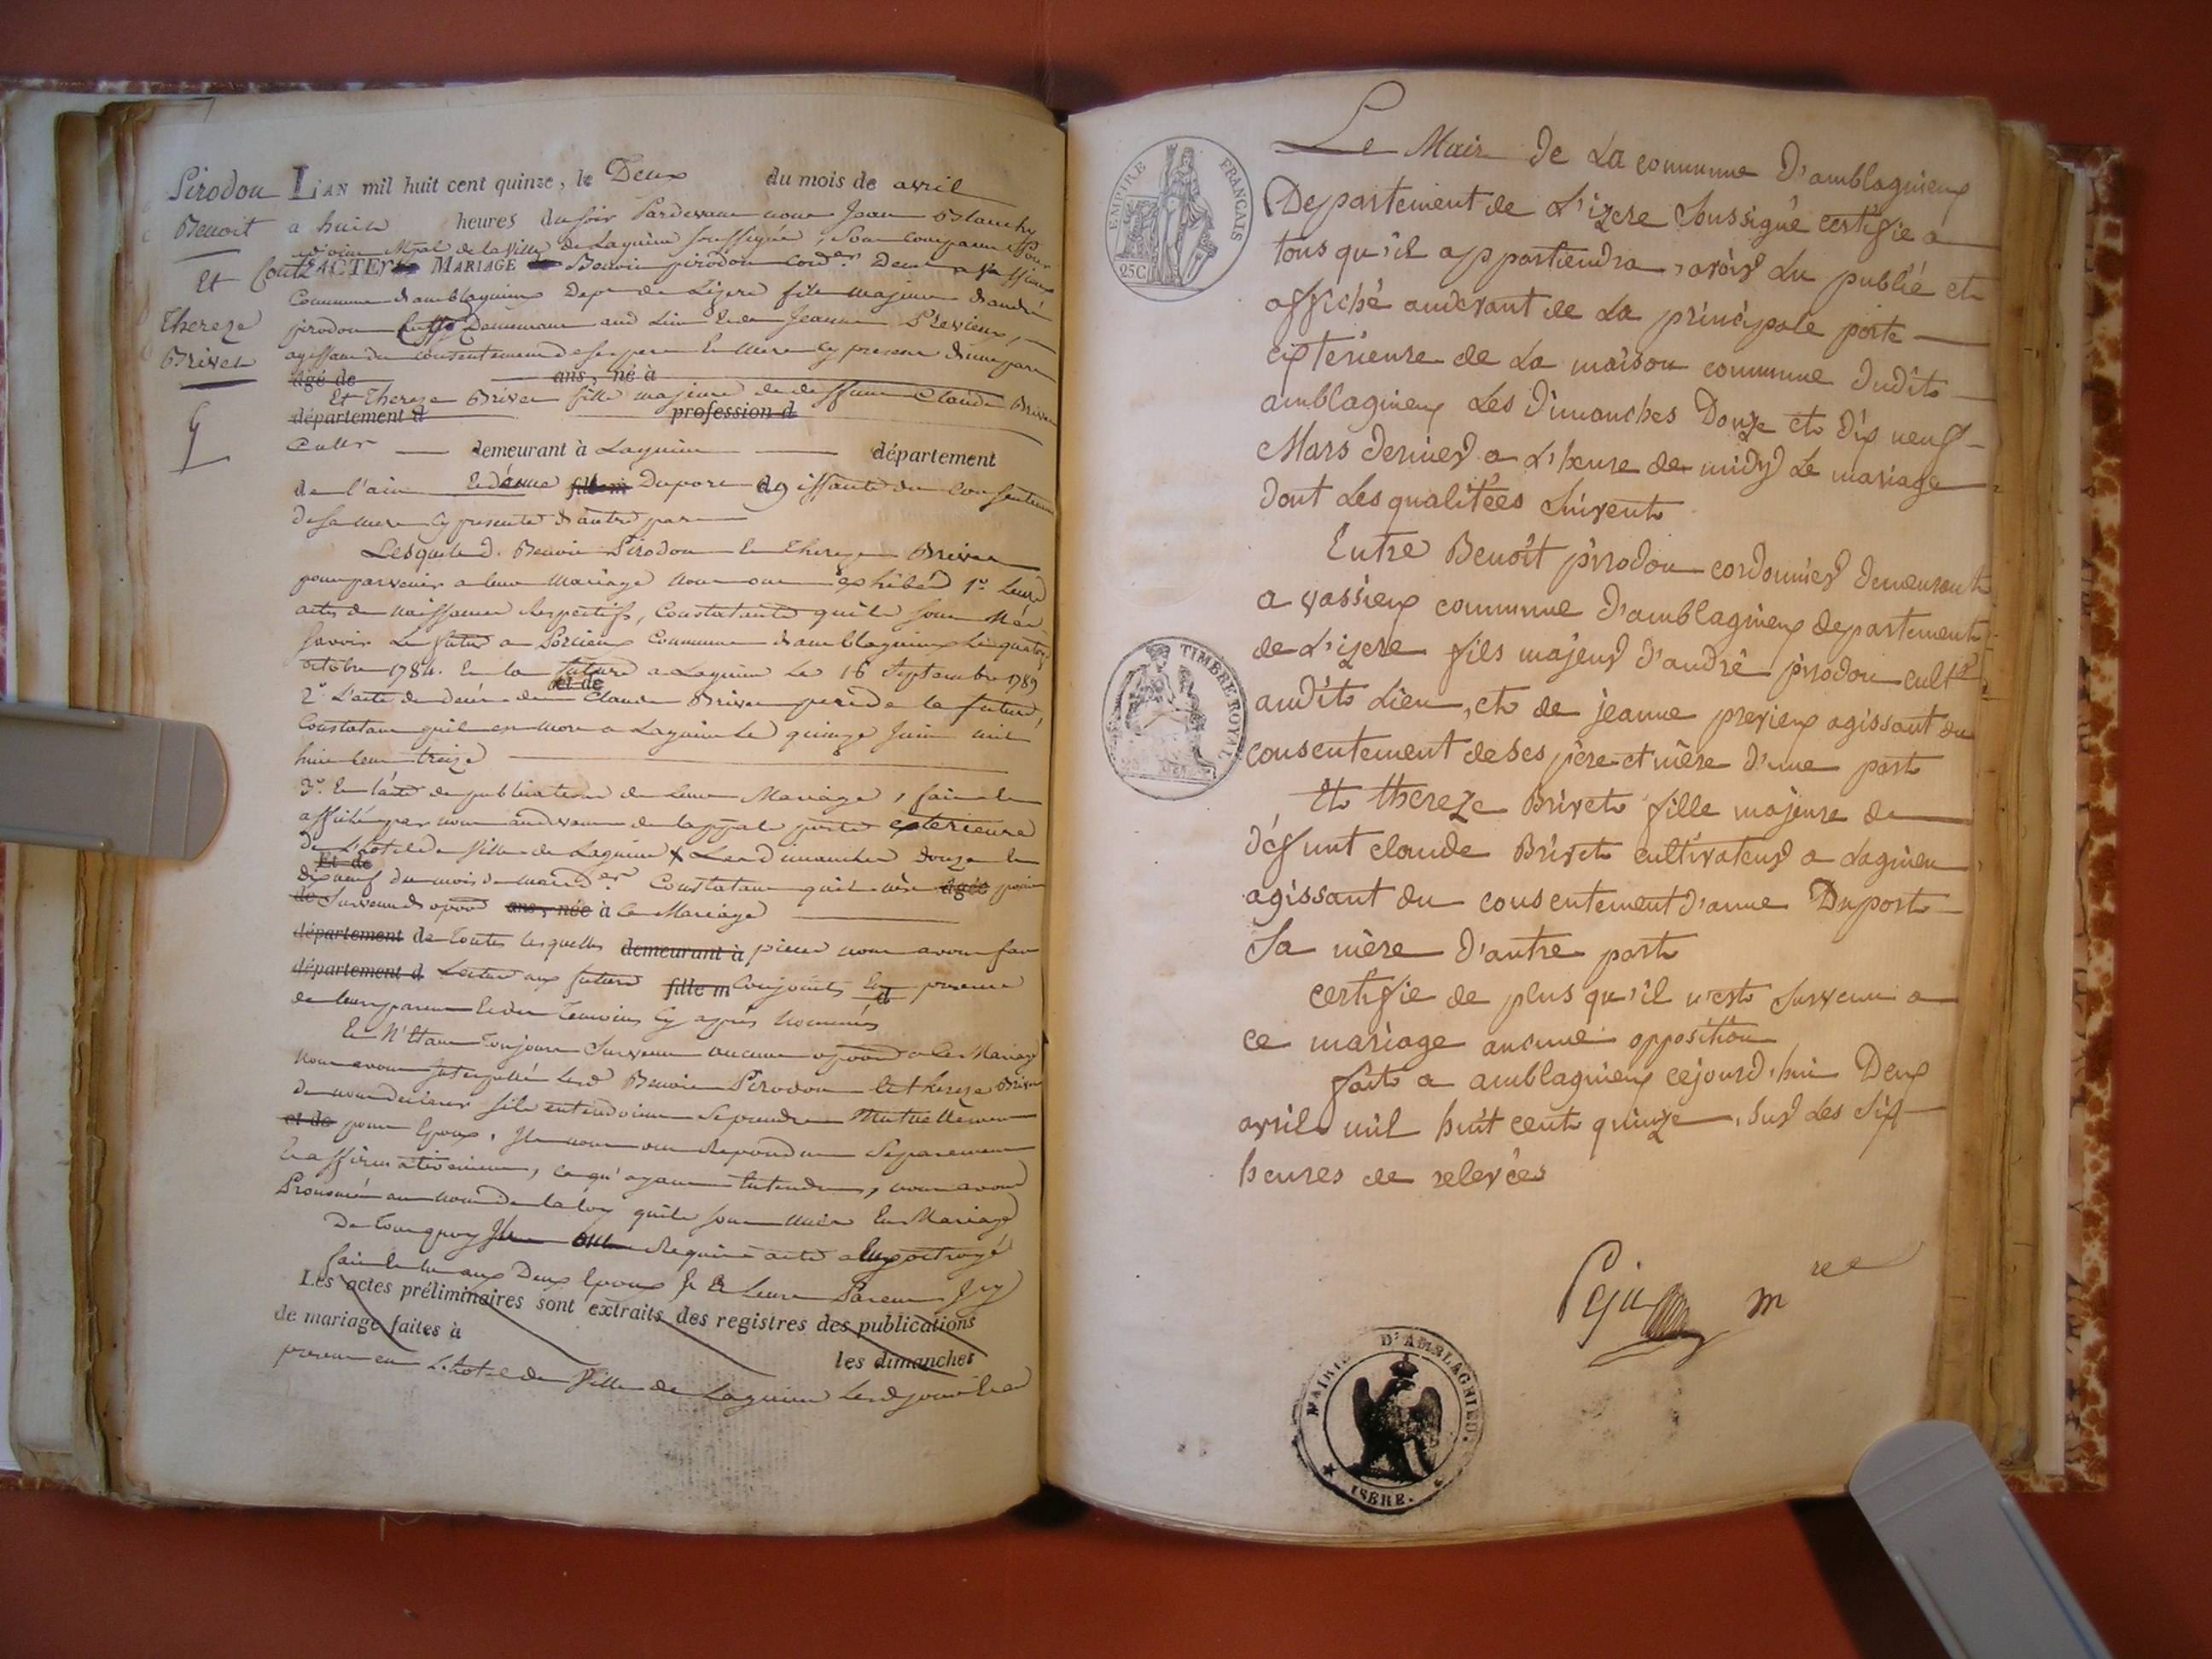 Pirodon
Benoit
Et
Thereze
Brivet
L'AN mil huit cent quinze, le Deux du mois de avril
a huit heures du soir Pardevant nous Jean Blanchy
adjoint Mpal de la Ville de Lagnieu soussigné, sont comparus Pour
Contr ACTER MARIAGE Benoit pirodon cord.er Demt a Vassieux
Commune d'amblagnieux Dept de Lizere fils majeur d'andré
pirodon Demeurant aud Lieu et de Jeanne Previeux,
agissant du consentement de ses pere et mere cy present d'une part
agé de ans, né à
Et Thereze Brivet fille majeure de deffunt Claude Brivet
département d profession d
Cultr demeurant à Lagnieu département
de l'ain Et d'anne fille m Duport agissante du Consentement
de sa mere cy presente d'autre part
Lesquels d. Benoit Pirodon et Thereze Brivet
pour parvenir a leur Mariage nous ont exhibés 1.º Leurs
actes de naissance Respectifs, Constatants qu'ils sont Nés
savoir Le futur a Commune d'amblagnieux Le quatorze
octobre 1784. Et la future a Lagnieu Le 16 Septembre 1789
et de
2.º L'acte de deces de Claude Brivet pere de la future,
Constatant qu'il est mort a Lagnieu Le quinze Juin mil
huit cent treize
3.º Et l'acte de publications de leur Mariage, fait et
affiché par nous audevant de la ppale porte exterieure
De L'hotel de Ville de Lagnieu Les Dimanches Douze et
Et de
dix neuf du mois de mars d.er Constatant qu'il n'est agée point
de Survenu d'oppon ans, née à ce Mariage
département de Toutes lesquelles demeurant à pieces nous avons fait
département d Lecture aux futurs fille m Conjoints En presence d
de leurs parens et des Temoins cy après nommés
Et N'Etant Toujours Survenu aucune oppon a ce Mariage
Nous avons Interpellé lesd Benoit Pirodon et thereze Brivet
de nous declarer s'ils entendoient se prendre Mutuellement
et de pour Epoux, Ils nous ont Repondu Separement
Et affirmativement, ce qu'ayant Entendu, nous avons
Prononcé au nom de la loy qu'ils sont unis En Mariage
De Tout quoy Ils ont Requis acte a Eux octroyé
fait et lu aux Deux Epoux et a Leurs Parens Icy
Les actes préliminaires sont extraits des registres des publications
de mariage faites à les dimanches
present en L'hotel de Ville de Lagnieu Lesd jour et an
EMPIRE FRANÇAIS
25C
TIMBRE ROYAL
Le Mair de La commune D'amblagnieux
Departement de L'izere soussigné certifie a
tous qu'il appartiendra, avoir Lu publié et
affiché audevant de La principale porte
extérieure de La maison commune Dudit
amblagnieux Les Dimanches Douze et Dix neuf
Mars dernier a L'heure de midy Le mariage
Dont Les qualitées Suivent
Entre Benoît pirodon cordonnier Demeurant
a vassieux commune D'amblagnieux departement
de L'izere fils majeur D'andré pirodon cultr
audit Lieu, et de jeanne previeux agissant du
consentement de ses père et mère D'une part
Et thereze Brivet fille majeure de
Défunt claude Brivet cultivateur a Lagnieu
agissant du consentement D'anne Duport
Sa mère D'autre part
certifie de plus qu'il n'est survenu a
ce mariage aucune opposition
fait a amblagnieux cejourd'hui Deux
avril mil huit cent quinze, sur Les six
heures de relevées
Peju m re
MAIRIE D'AMBLAGNIEUX
ISERE.